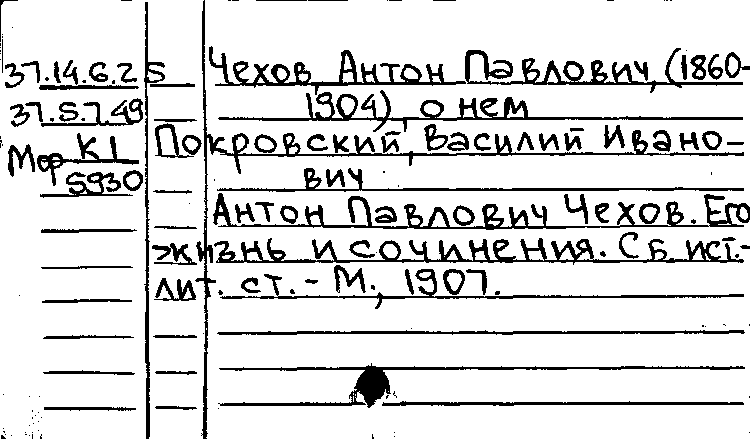 37.14.6.25 Чехов, Антон Павлович, (1860-
37.5.7.49 1904), о нем
Мор К1 Покровский, Василий Ивано-
5930 вич
Антон Павлович Чехов. Его
жизнь и сочинения. Сб. ист.-
лит. ст. - М., 1907.